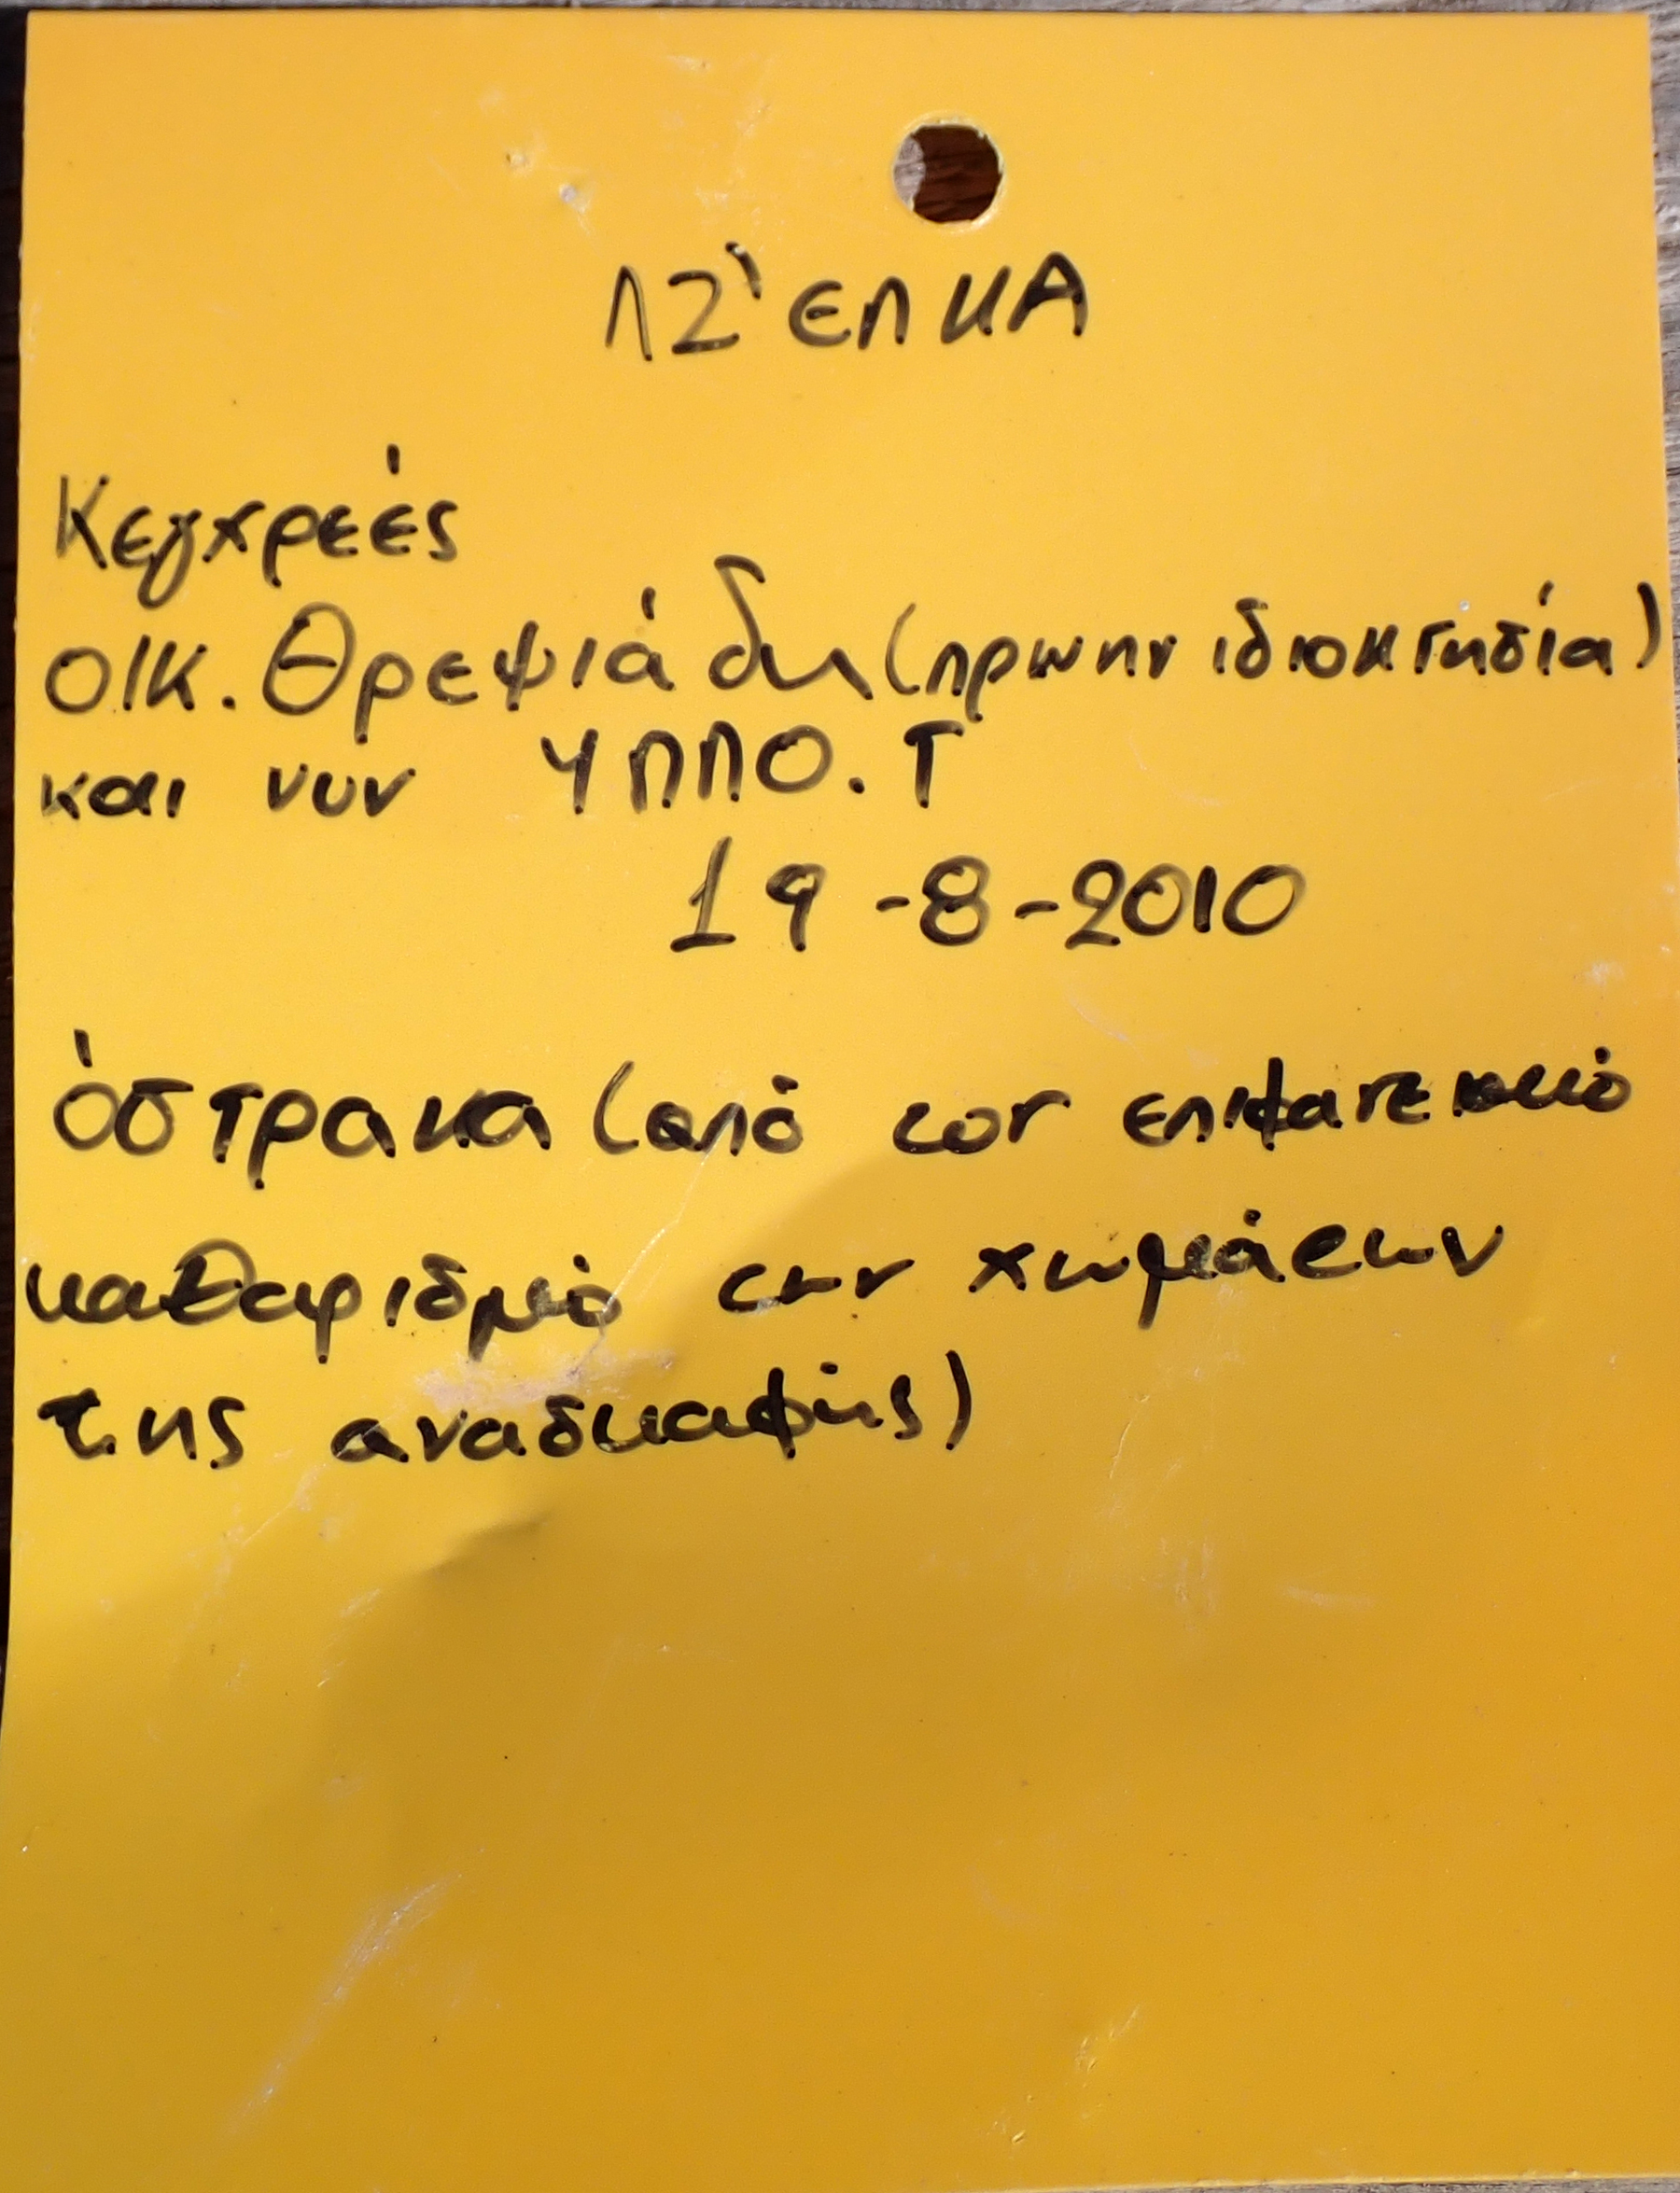 ΛΖ' ΕΠΚΑ
Κεγχρεές
ΟΙΚ. Θρεψιάδη (πρώην ιδιοκτησία)
και νυν ΥΠΠΟ.Τ
19-8-2010
όστρακα (από τον επιφανειακό
καθαρισμό των χωμάτων
της ανασκαφής)